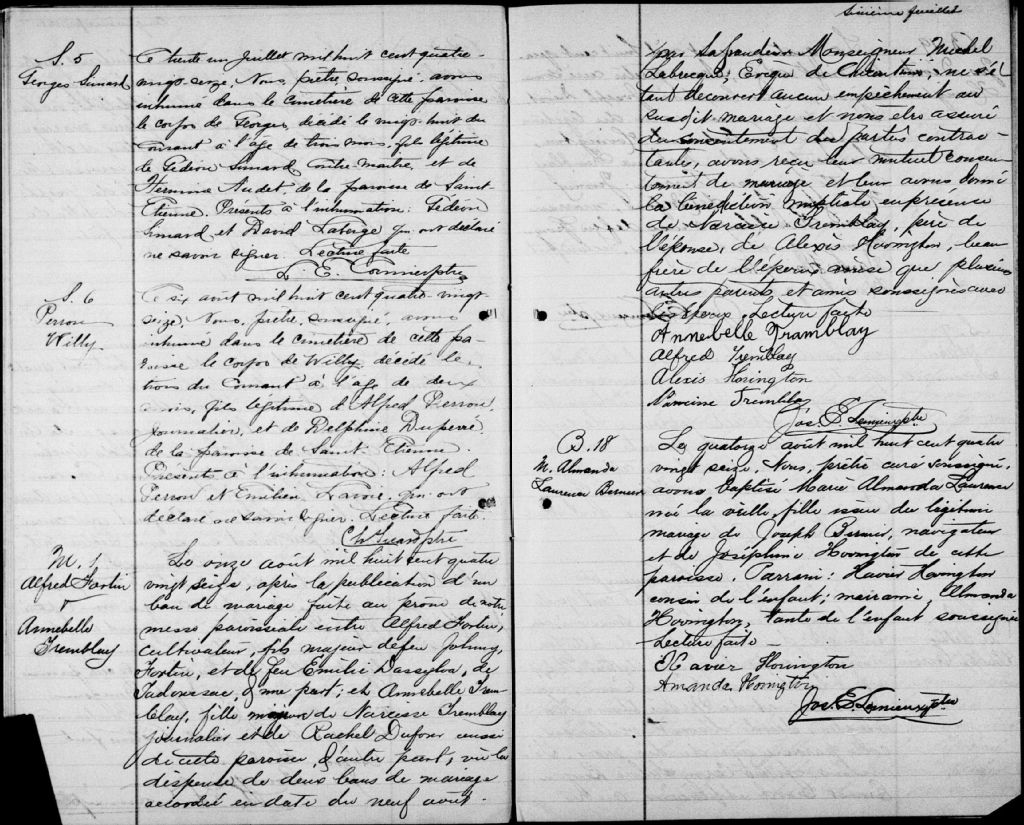 S. 5
Georges Simard
Ce trente un Juillet mil huit cent quatre-
vingt-seize, Nous, prêtre soussigné, avons
inhumé dans le cimetière de cette paroisse
le corps de Georges, décédé le vingt-huit du
courant à l'âge de trois mois, fils légitime
de Gédéon Simard contre maître et de
Herminie Audet de la paroisse de Saint-
Etienne. Présents à l'inhumation: Gédéon
Simard et David Laforge qui ont déclaré
ne savoir signer. Lecture faite
L. E. ptre
S. 6
Perron
Willy
Ce six août mil huit cent quatre-vingt-
seize, Nous, prêtre, soussigné, avons
inhumé dans le cimetière de cette pa-
roisse le corps de Willy décédé le
trois du courant à l'âge de deux
mois, fils légitime d'Alfred Perron,
journalier, et de Delphine Duperré
de la paroisse de Saint Etienne.
Présents à l'inhumation: Alfred
Perron et Emilien Lavoie, qui ont
déclaré ne savoir signer. Lecture faite.
ptre
M. 1
Alfred Fortin
&
Annebelle
Tremblay
Le onze août mil huit cent quatre
vingt seize, après la publication d'un
ban de mariage faite au prône de notre
messe paroissiale entre Alfred Fortin,
cultivateur, fils majeur de feu Johnny
Fortin, et de feu Emilie Dassylva, de
Tadoussac, d'une part; et Annebelle Trem-
blay, fille mineure de Narcisse Tremblay
journalier et de Rachel Dufour aussi
de cette paroisse, d'autre part, vu la
dispense de deux bans de mariage
accordée en date du neuf août
Sixième feuillet
par Sa Grandeur Monseigneur Michel
Labrecque, Evêque de Chicoutimi; ne s'é-
tant découvert aucun empêchement au
susdit mariage et nous étant assuré
du consentement des parties contrac-
tantes, avons reçu leur mutuel consen-
tement de mariage et leur avons donné
la bénédiction nuptiale en présence
de Narcisse Tremblay, père de
l'épouse, de Alexis Hovington, beau
frère de l'époux ainsi que plusieurs
autres parents et amis soussignés avec
les époux. Lecture faite
Annebelle Tramblay
Alfred Tremblay
Alexis Hovington
Narcisse Tremblay
Jos. E. Lemieux ptre
B. 18
M. Almanda
Laurence Bernier
Le quatorze août mil huit cent quatre
vingt seize, Nous, prêtre curé soussigné,
avons baptisé Marie Almanda Laurence
née la veille, fille issue du légitime
mariage de Joseph Bernier, navigateur
et de Joséphine Hovington de cette
paroisse. Parrain: Xavier Hovington
cousin de l'enfant; marraine, Almanda
Hovington, tante de l'enfant soussignés
Lecture faite
Xavier Hovington
Amanda Hovington
Jos. E. Lemieux ptre